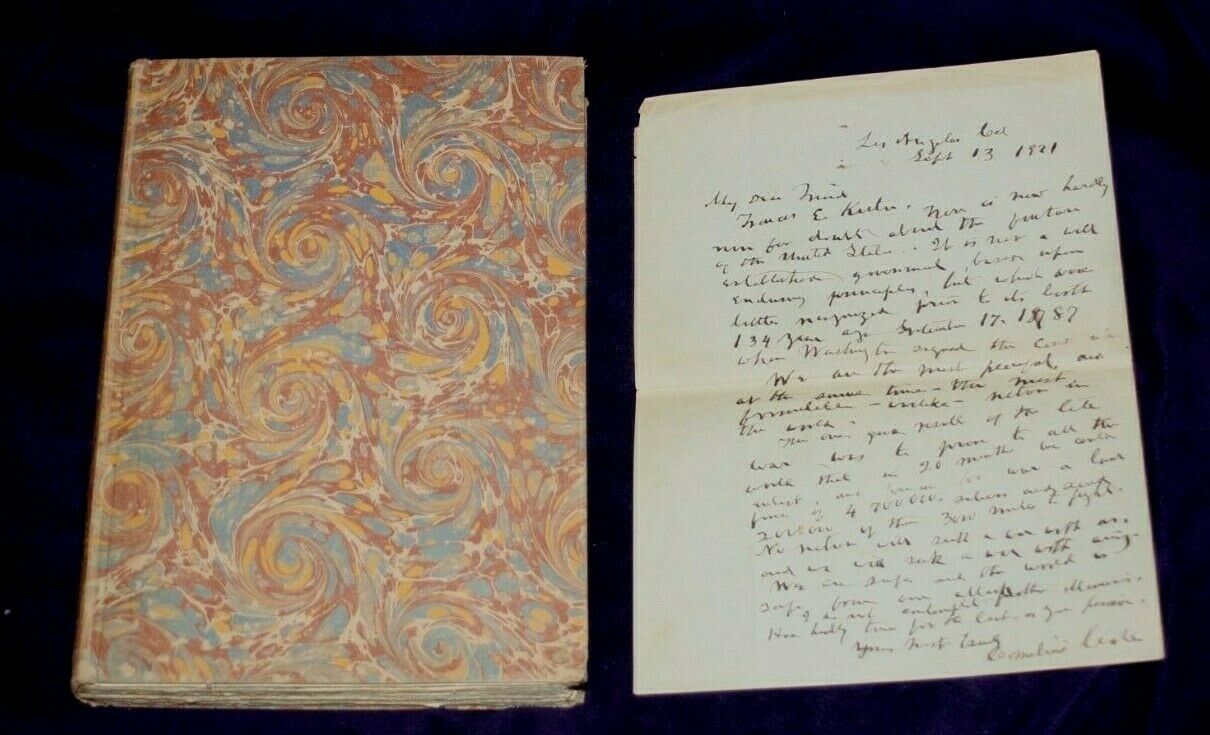 Los Angeles Cal
Sept 13 1921
My Dear Friend
Francis E. There is now hardly
room for doubt about the future
of the United States. It is now a well
established government based upon
enduring principles, but which were
little recognized prior to its birth
134 years ago September 17, 1787
when Washington signed the
We are the most peaceful, and
at the same time - the most
- nation in
the world.
The one great result of the late
war was to prove to all the
world that in 20 months we could
enlist, and for war a
force of 4 700000, and send
2000000 of them 3000 miles to fight.
No nation will seek a war with us,
and we will seek a war with
We are safe and the world is
safe from our
I am not
Have hardly time for the
Yours Most Truly
Cornelius Cole